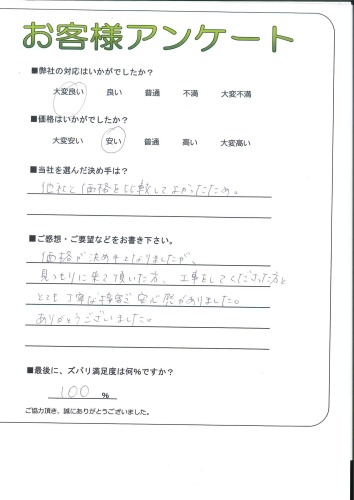 お客様アンケート
■弊社の対応はいかがでしたか？
大変良い 良い 普通 不満 大変不満
■価格はいかがでしたか？
大変安い 安い 普通 高い 大変高い
■当社を選んだ決め手は？
他社と価格を比較してよかったため。
■ご感想・ご要望などをお書き下さい。
価格が決め手となりましたが、
見つもりに来て頂いた方、工事をしてくださった方と
とても丁寧な接客で安心感がありました。
ありがとうございました。
■最後に、ズバリ満足度は何％ですか？
100 ％
ご協力頂き、誠にありがとうございました。